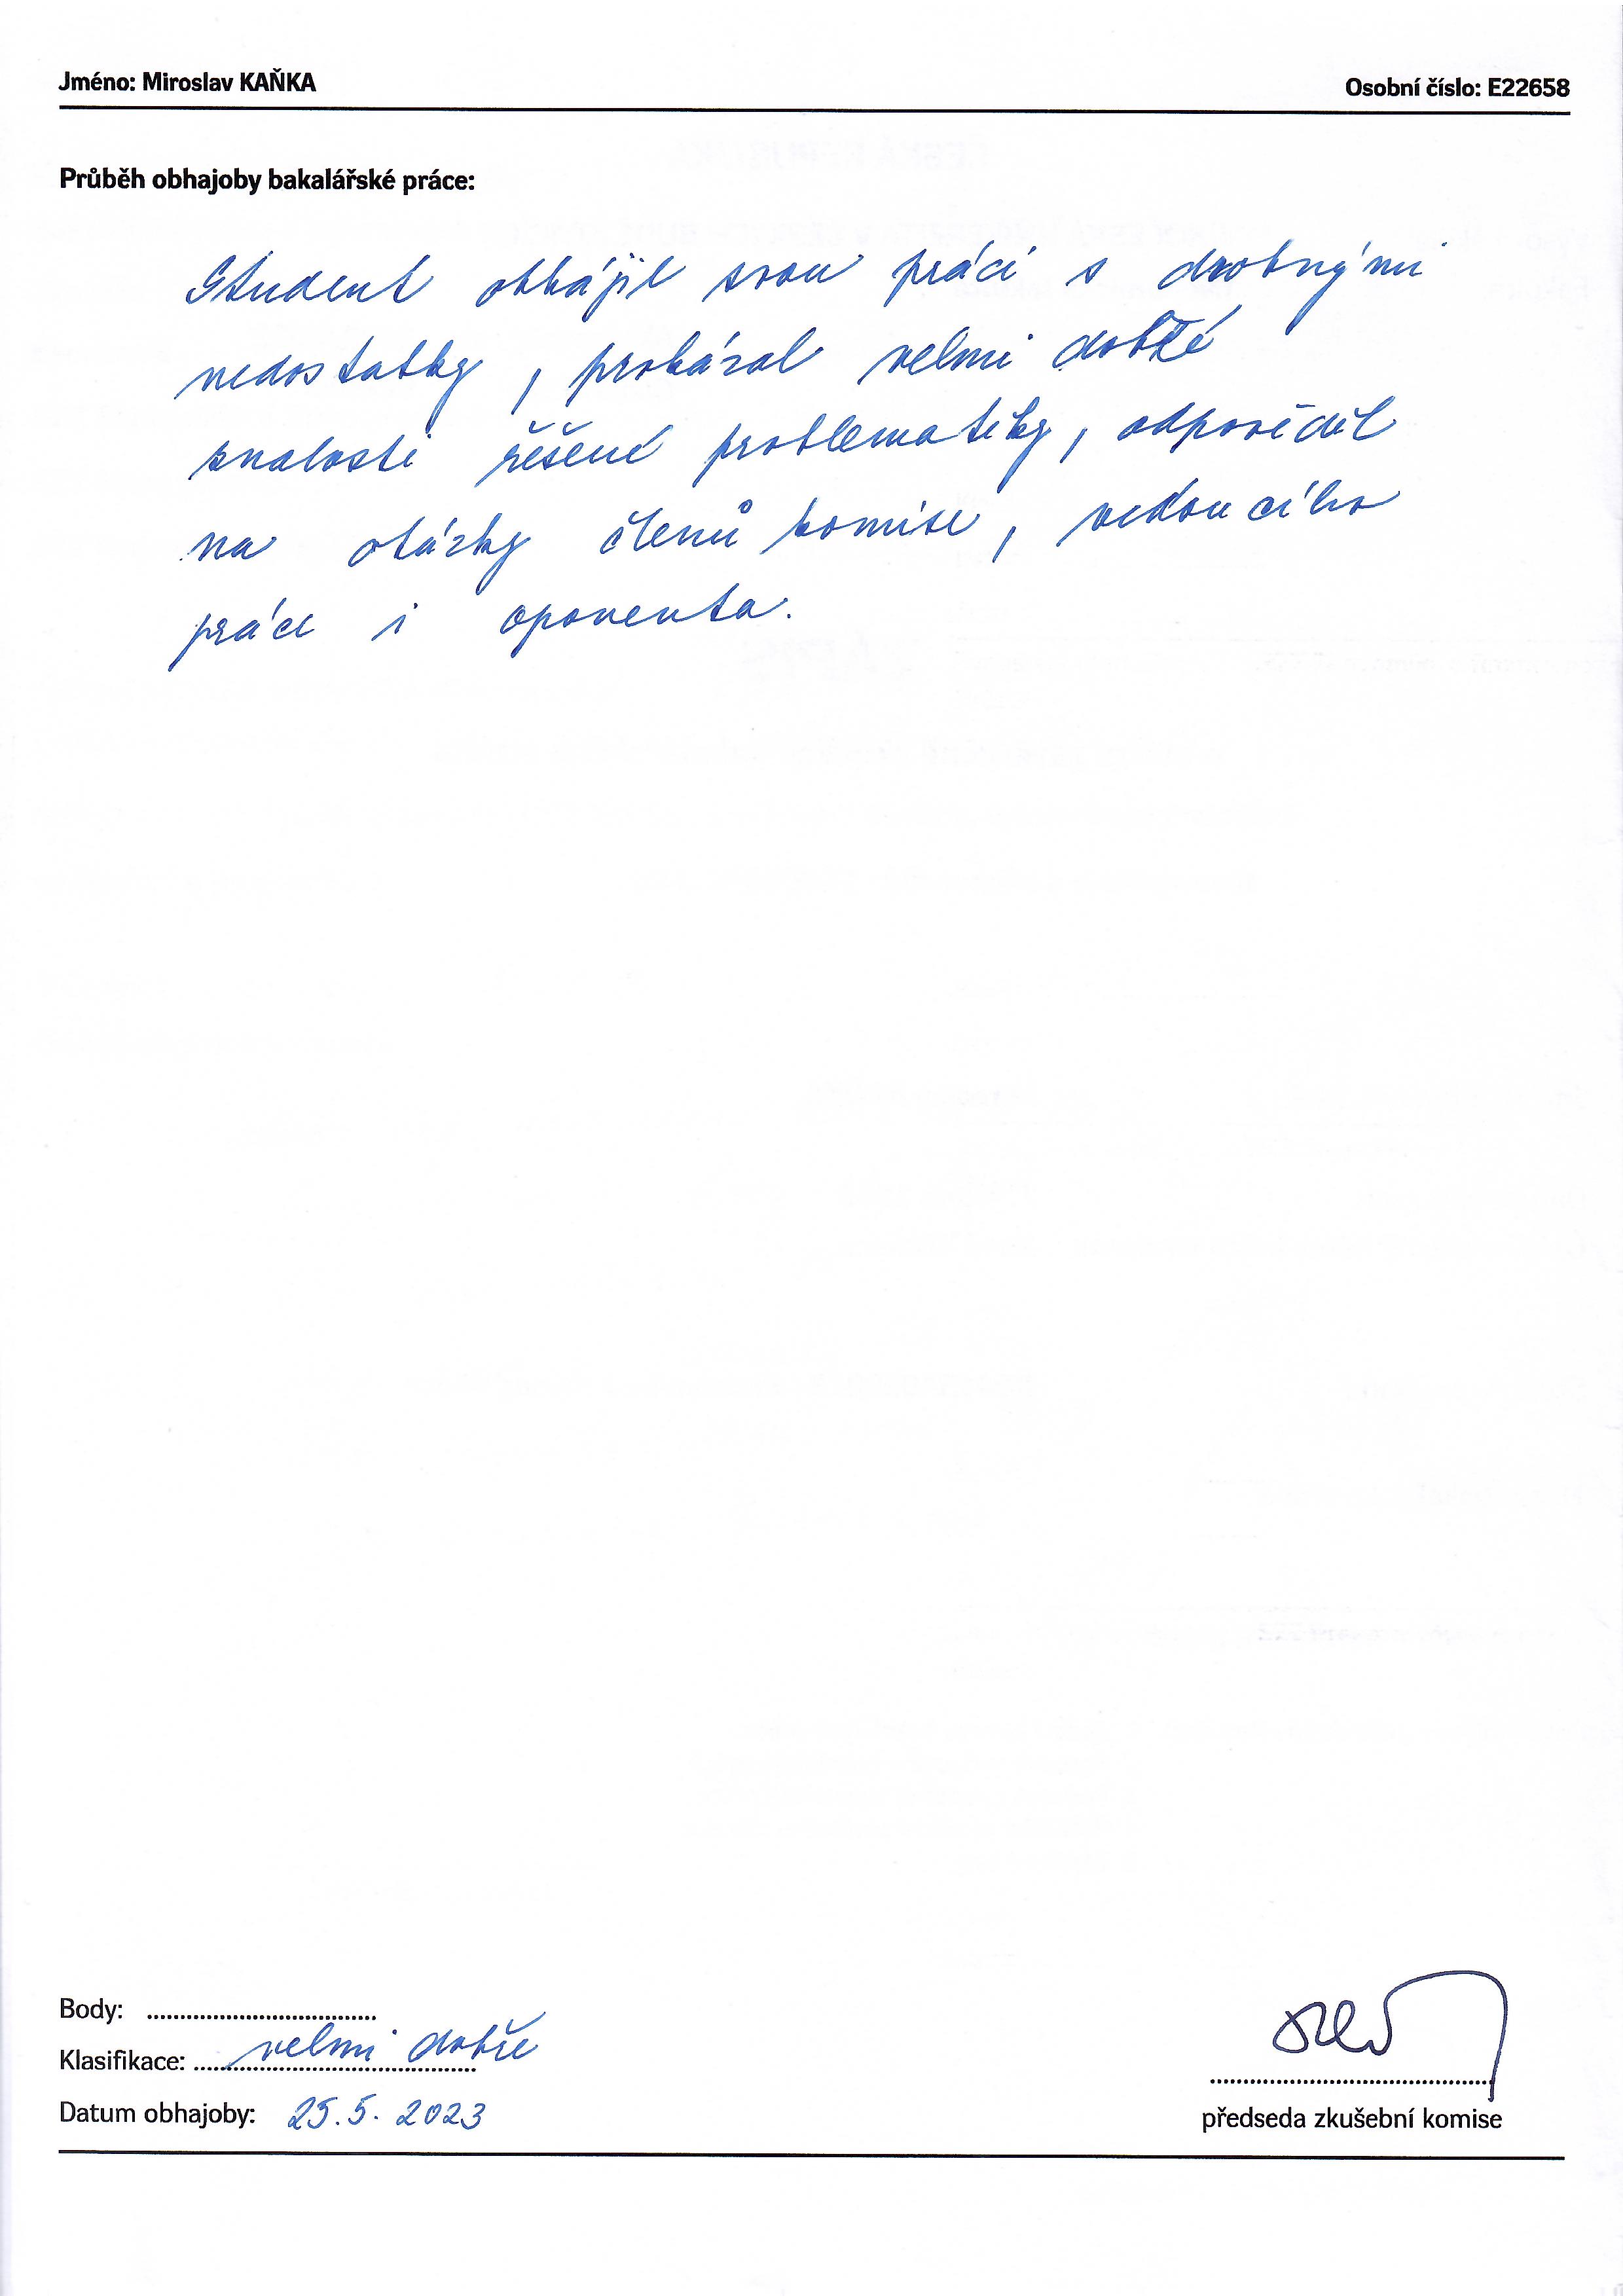 Jméno: Miroslav KAŇKA Osobní číslo: E22658
Průběh obhajoby bakalářské práce:
Student obhájil svou práci s drobnými
nedostatky, prokázal velmi dobré
znalosti řešené problematiky, odpověděl
na otázky členů komise, vedoucího
práce i oponenta.
Body: ..................................
Klasifikace: velmi dobře
Datum obhajoby: 25. 5. 2023
předseda zkušební komise